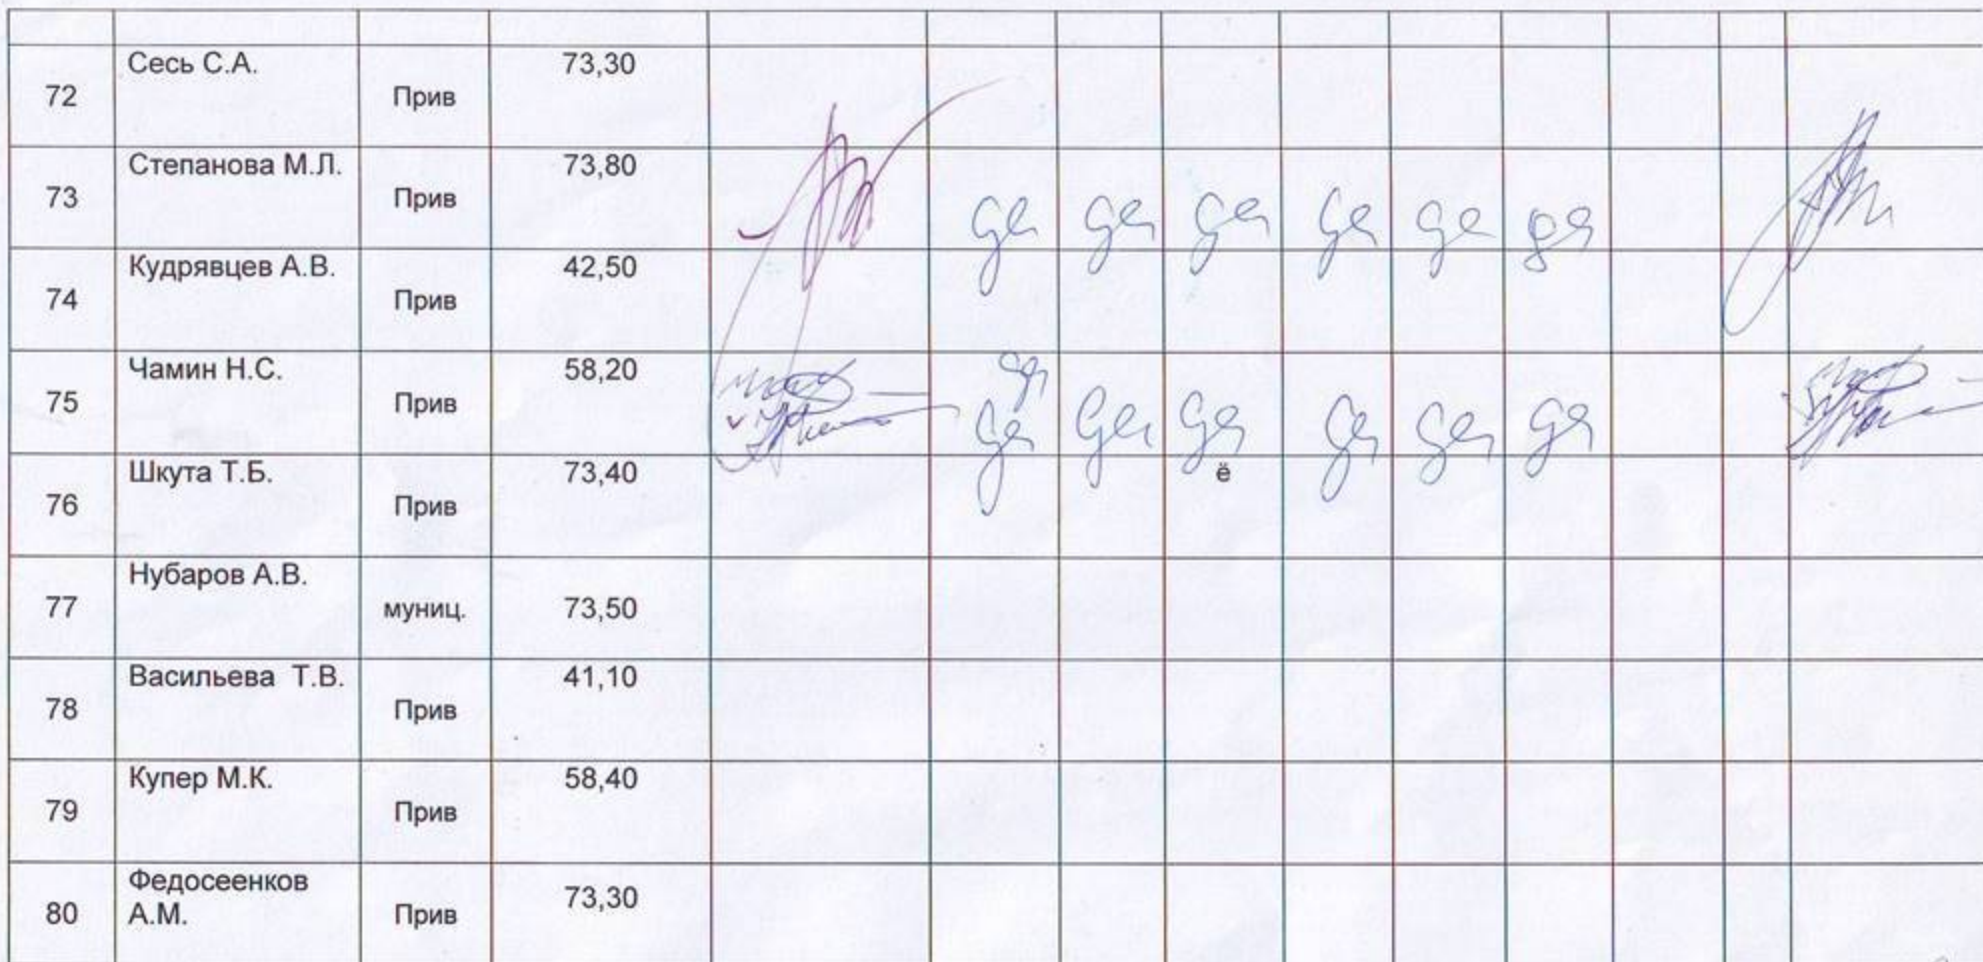 72 Сесь С.А. Прив 73,30
73 Степанова М.Л. Прив 73,80 да да да да да да
74 Кудрявцев А.В. Прив 42,50
75 Чамин Н.С. Прив 58,20 да
да да да да да да
ё
76 Шкута Т.Б. Прив 73,40
77 Нубаров А.В. муниц. 73,50
78 Васильева Т.В. Прив 41,10
79 Купер М.К. Прив 58,40
80 Федосеенков
А.М. Прив 73,30